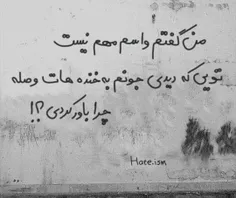 من گفتم واسم مهم نیست
تویی که دیدی جونم به خنده هات وصله
چرا باور کردی ؟!!
Hate.ism